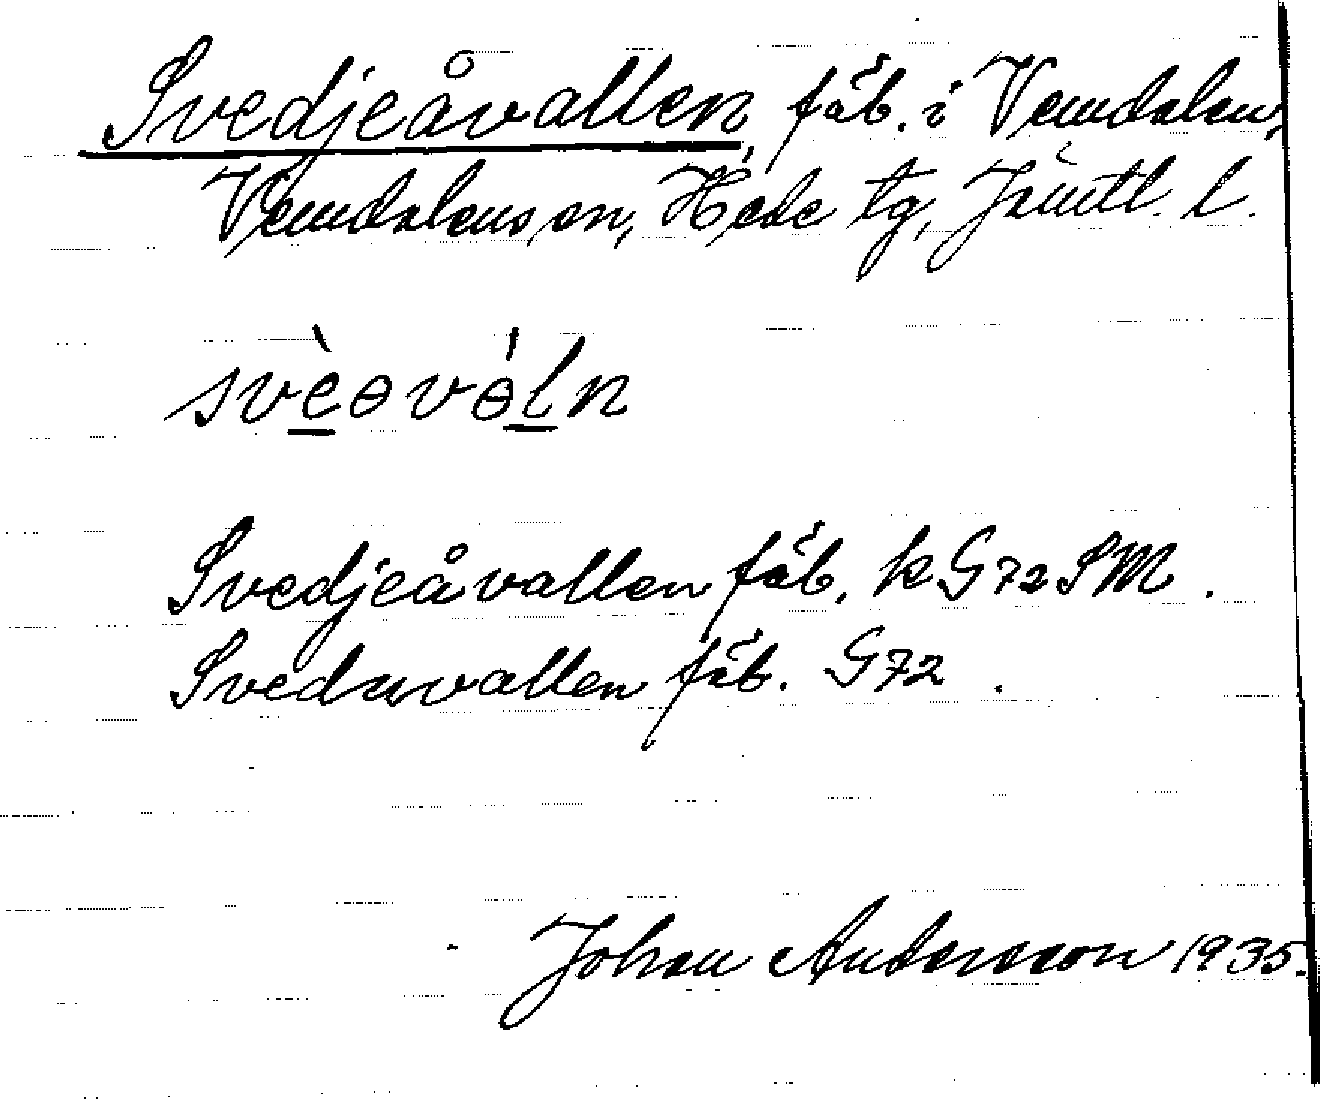 Svedjeåvallen, fäb. i Vemdalen,
Vemdalens sn, Hede tg, Jämtl. l.
svèɵvɵ́ln
Svedjeåvallen fäb. k G72 SM.
Sveduvallen fäb. G72.
Johan Andersson 1935.